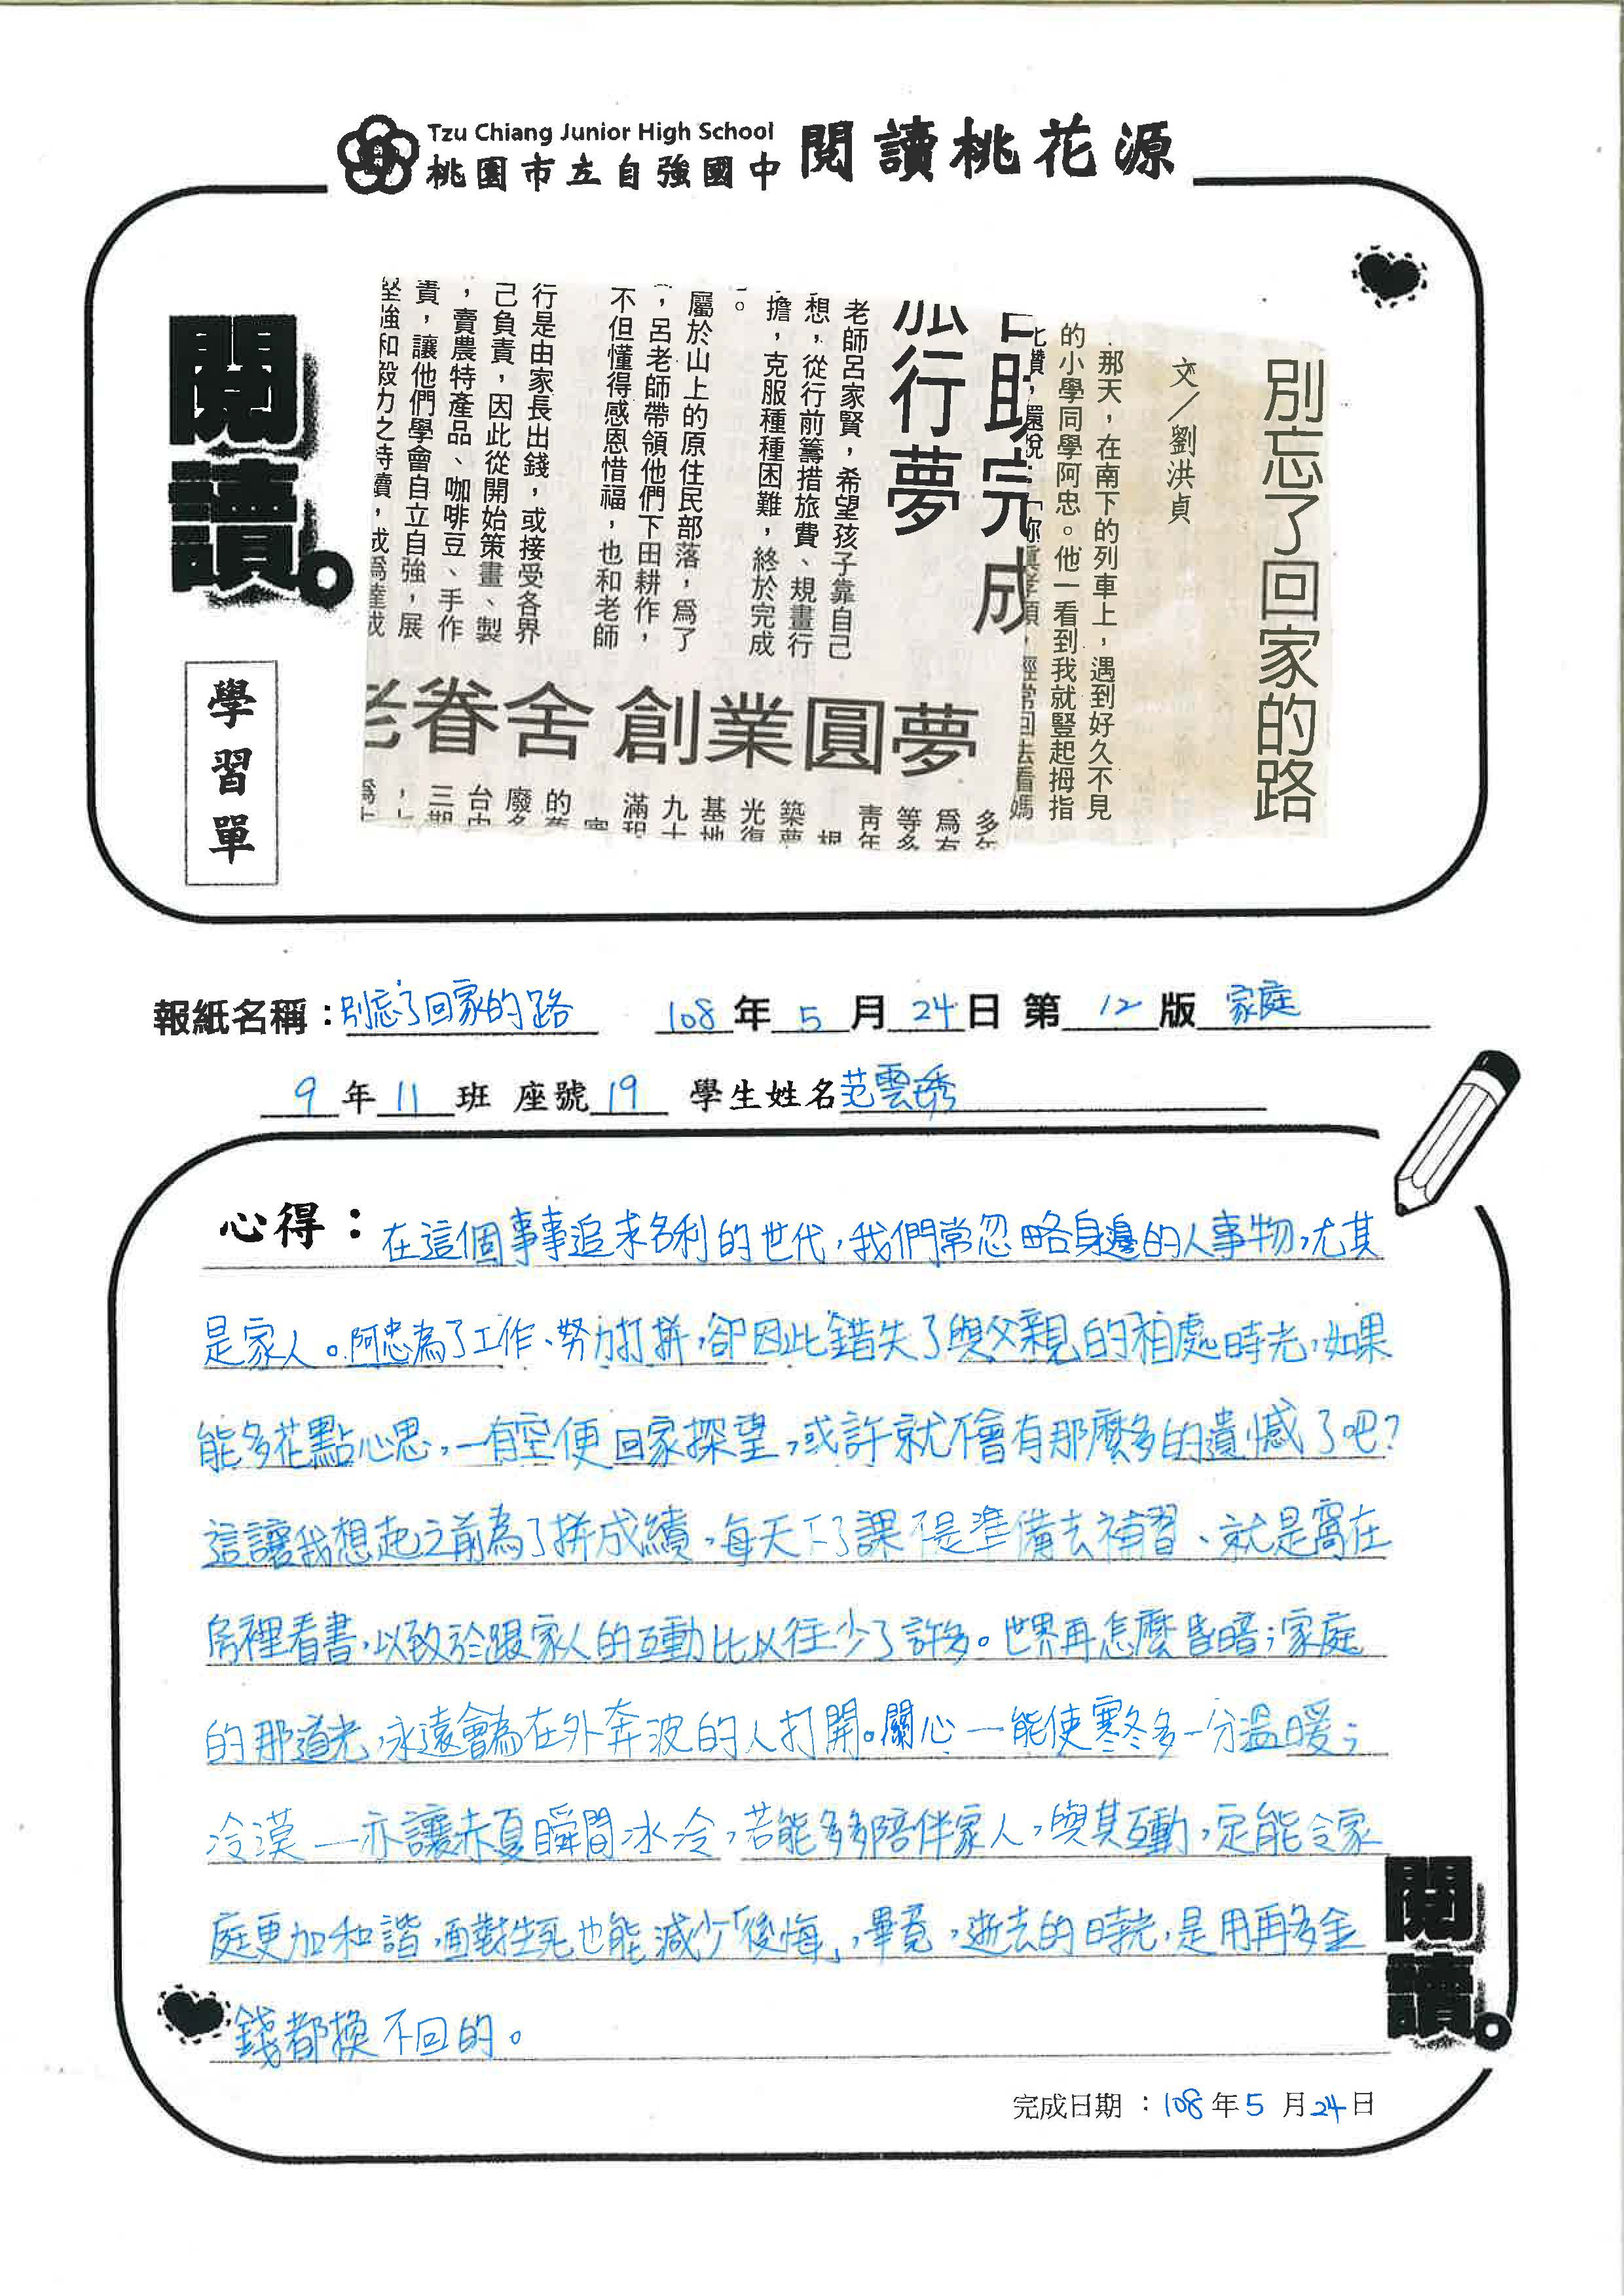 Tzu Chiang Junior High School
桃園市立自強國中
閱讀桃花源
閱讀。
學習單
別忘了回家的路
文╱劉洪貞
那天，在南下的列車上，遇到好久不見
的小學同學阿忠。他一看到我就豎起拇指
讚，還說：「你真孝順，經常回去看媽
自助完成
旅行夢
老師呂家賢，希望孩子靠自己
想，從行前籌措旅費、規畫行
擔，克服種種困難，終於完成
。
屬於山上的原住民部落，為了
，呂老師帶領他們下田耕作，
不但懂得感恩惜福，也和老師
行是由家長出錢，或接受各界
己負責，因此從開始策畫、製
，賣農特產品、咖啡豆、手作
責，讓他們學會自立自強，展
堅強和毅力之持續，成為達成
老眷舍 創業圓夢
多年
為有
等多
青年
根
築夢
光復
基地
九十
滿程
的
廢
台中
三期
為
報紙名稱：別忘了回家的路 108年5月24日第12版 家庭
9年11班 座號19 學生姓名范雲琇
心得：在這個事事追求名利的世代，我們常忽略身邊的人事物，尤其
是家人。阿忠為了工作、努力打拚，卻因此錯失了與父親的相處時光，如果
能多花點心思，一有空便回家探望，或許就不會有那麼多的遺憾了吧？
這讓我想起之前為了拚成績，每天下了課不是準備去補習、就是窩在
房裡看書，以致於跟家人的互動比以往少了許多。世界再怎麼昏暗；家庭
的那道光，永遠會為在外奔波的人打開。關心一能使寒冬多一分溫暖；
冷漠一亦讓赤夏瞬間冰冷，若能多多陪伴家人，與其互動，定能令家
庭更加和諧，面對生死也能減少「後悔」，畢竟，逝去的時光，是用再多金
錢都換不回的。
閱讀。
完成日期：108年5月24日